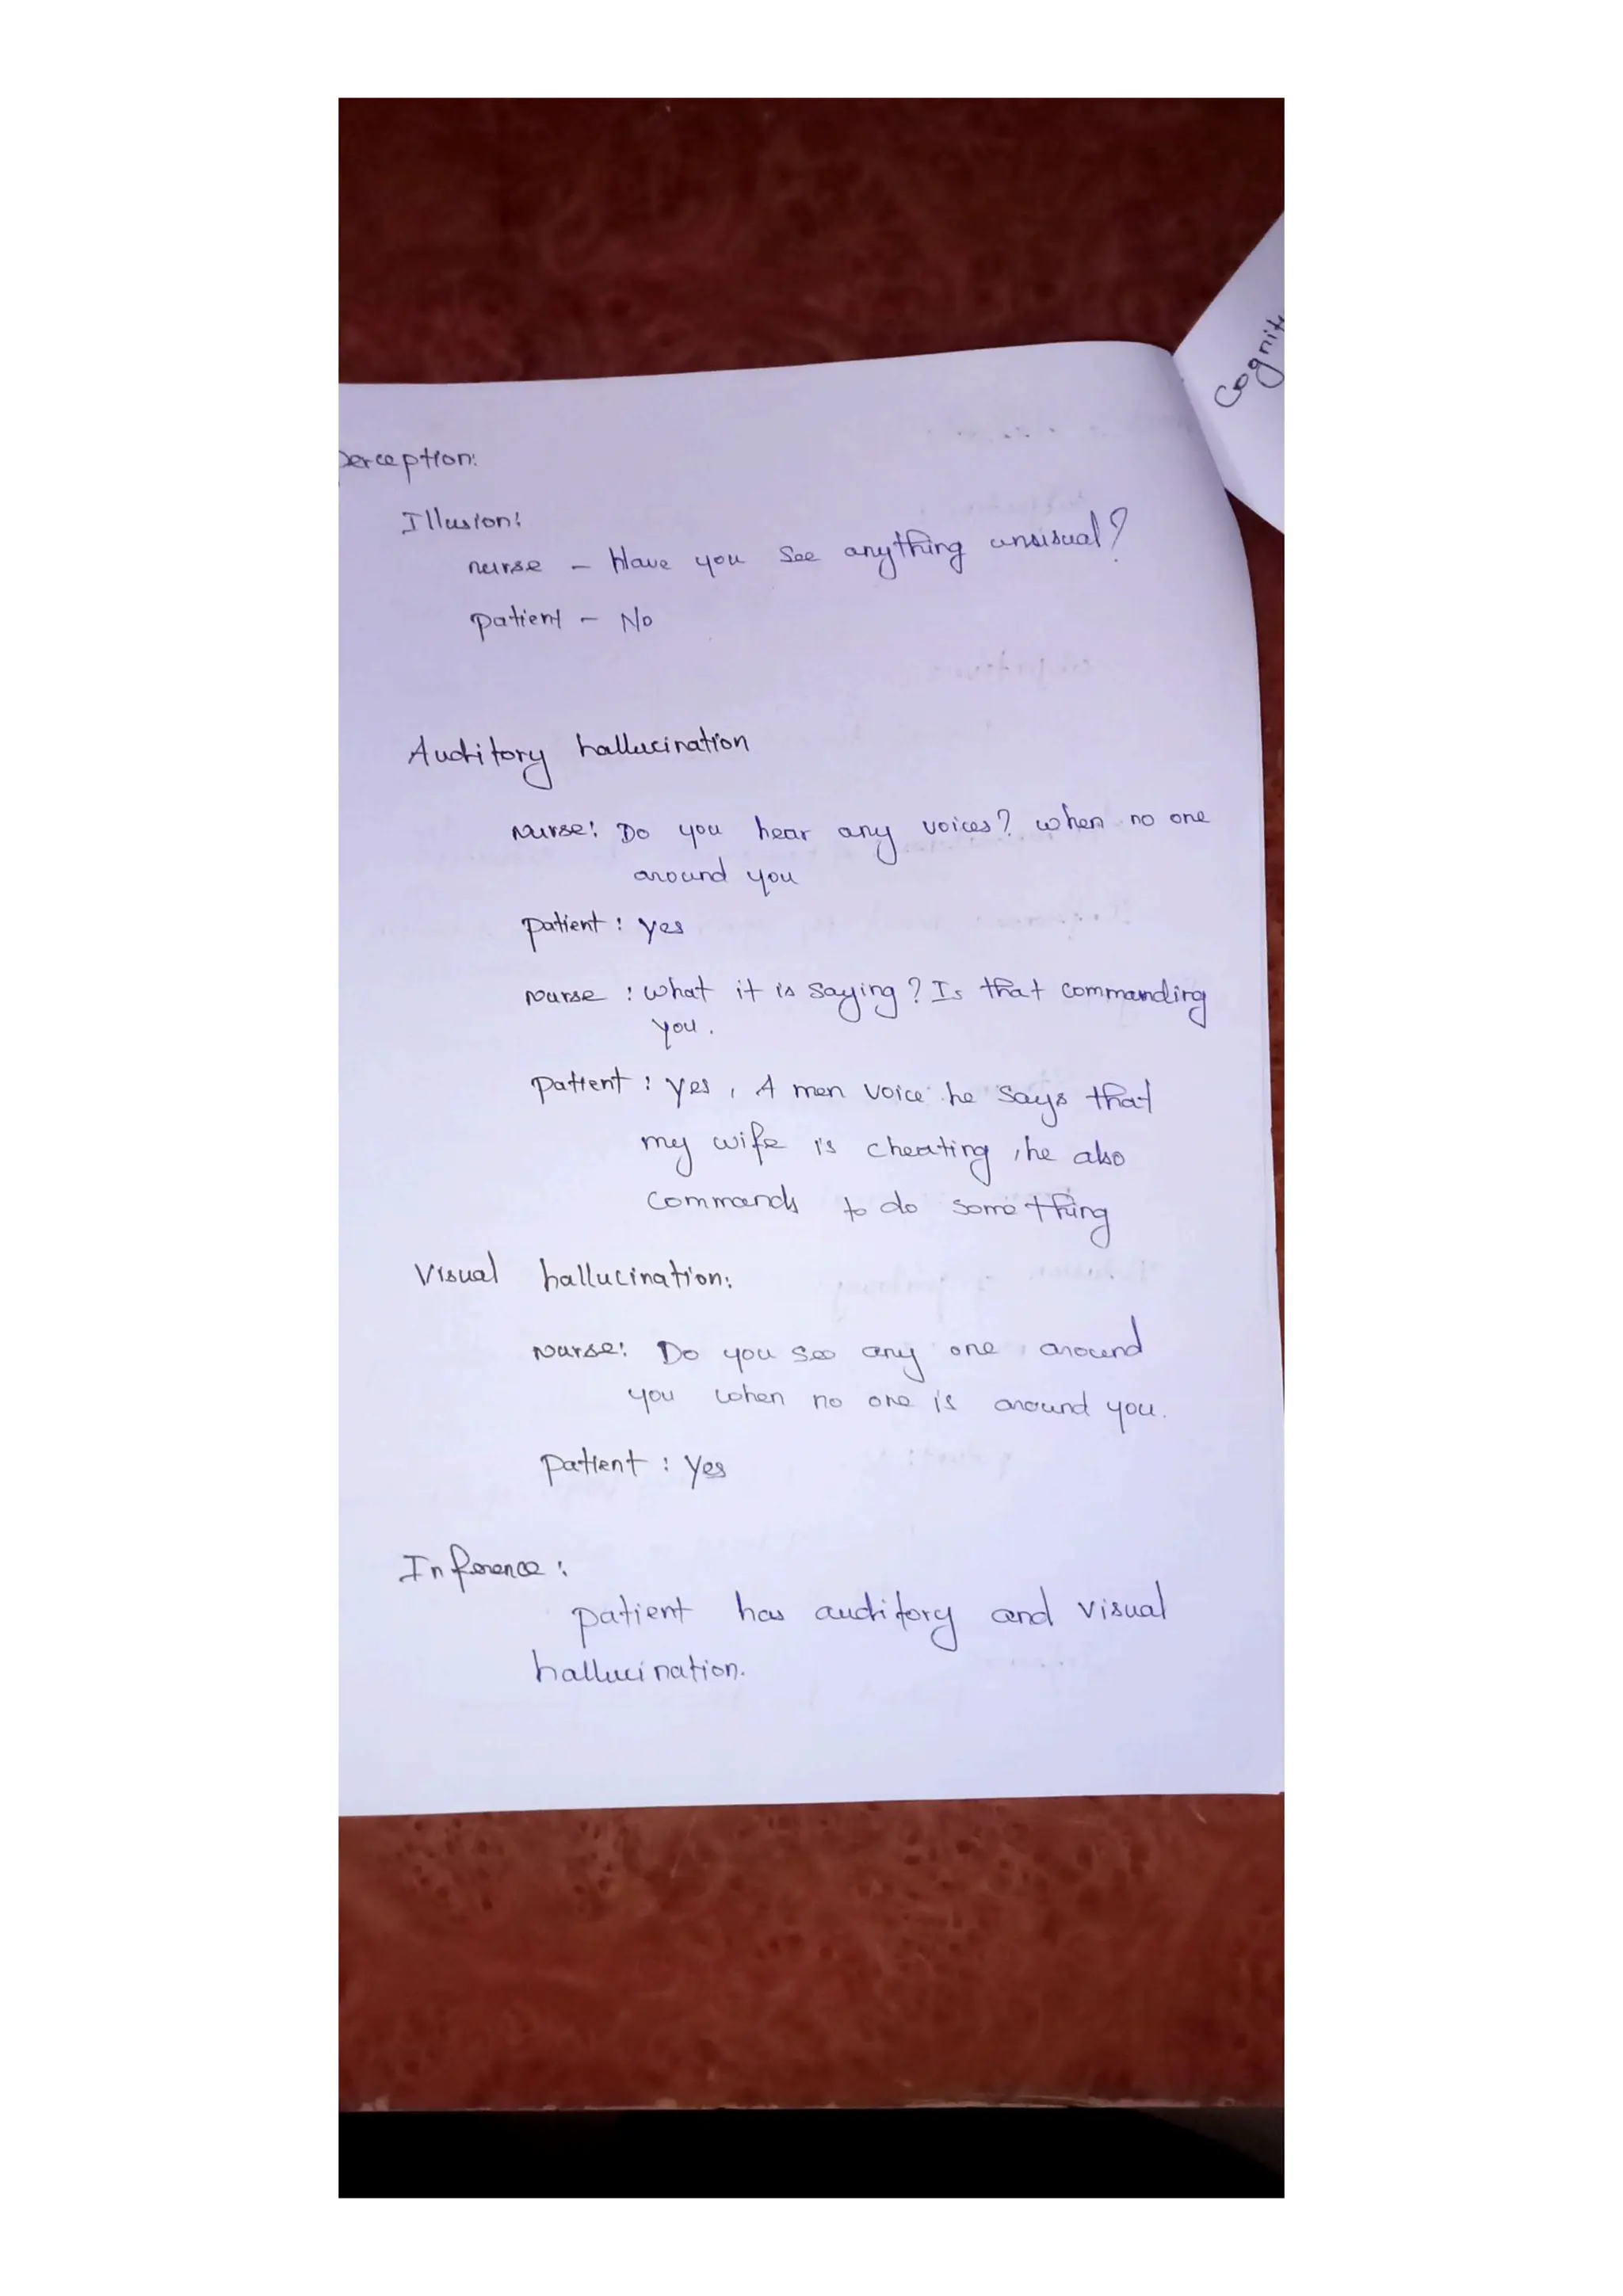 perception:
Illusion:
nurse - Have you see anything unsisual?
patient - No
Auditory hallucination
nurse: Do you hear any voices? when no one
around you
patient: yes
nurse: what it is saying? Is that commanding
you.
patient: yes, A men voice he says that
my wife is cheating, he also
commands to do something
Visual hallucination:
nurse: Do you see any one around
you when no one is around you.
patient: yes
Inference:
patient has auditory and visual
hallucination.
Cognit